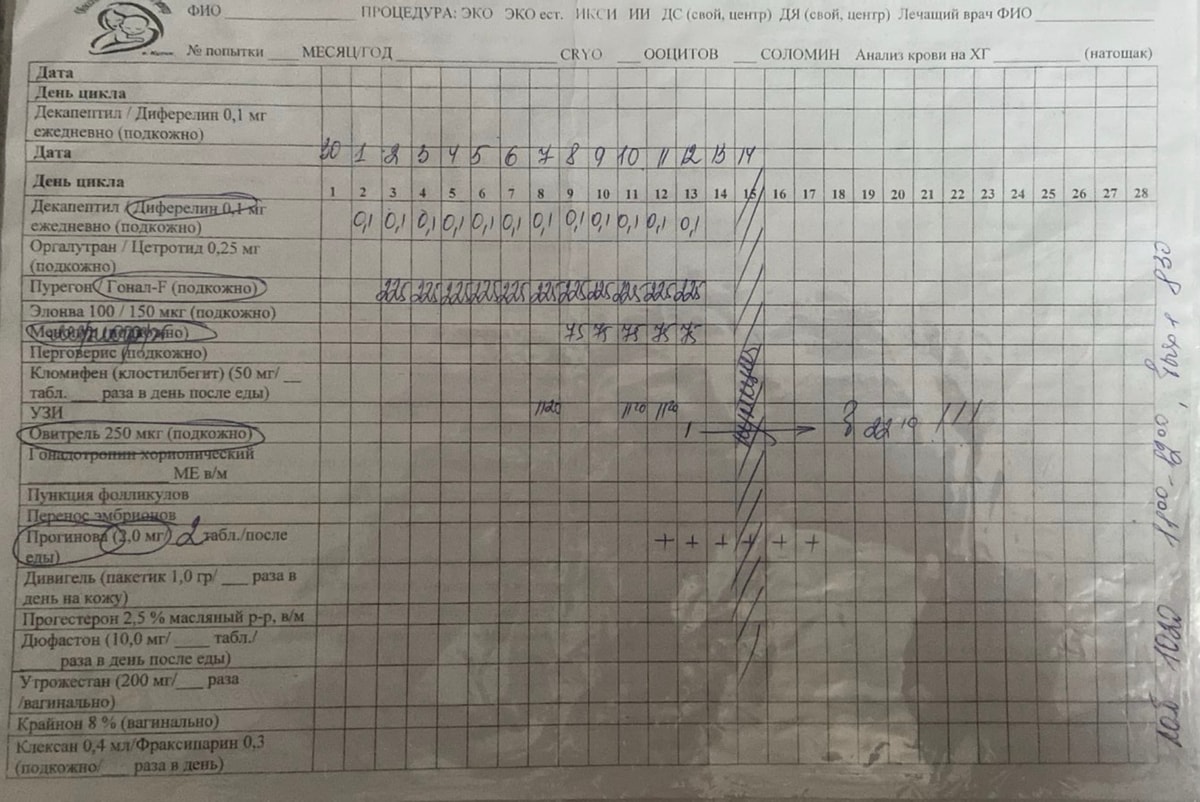 ФИО ПРОЦЕДУРА: ЭКО ЭКО ест. ИКСИ ИИ ДС (свой, центр) ДЯ (свой, центр) Лечащий врач ФИО
№ попытки ____ МЕСЯЦ/ГОД CRYO ___ ООЦИТОВ ___ СОЛОМИН Анализ крови на ХГ (натощак)
Дата
День цикла
Декапептил / Диферелин 0,1 мг
ежедневно (подкожно)
Дата 30 1 2 3 4 5 6 7 8 9 10 11 12 13 14
День цикла 1 2 3 4 5 6 7 8 9 10 11 12 13 14 15 16 17 18 19 20 21 22 23 24 25 26 27 28
Декапептил / Диферелин 0,1 мг
ежедневно (подкожно) 0,1 0,1 0,1 0,1 0,1 0,1 0,1 0,1 0,1 0,1 0,1 0,1
Оргалутран / Цетротид 0,25 мг
(подкожно)
Пурегон / Гонал-F (подкожно) 225 225 225 225 225 225 225 225 225 225 225
Элонва 100 / 150 мкг (подкожно)
75 75 75 75 75
Перговерис (подкожно)
Кломифен (клостилбегит) (50 мг/ __
табл. ___ раза в день после еды)
УЗИ 11 20 11 20 11 20
Овитрель 250 мкг (подкожно) 1 В 22 00 !!!
Гонадотропин хорионический
МЕ в/м
Пункция фолликулов
Перенос эмбрионов
Прогинова (2,0 мг/ 2 табл./после
еды) + + + + + +
Дивигель (пакетик 1,0 гр/ ___ раза в
день на кожу)
Прогестерон 2,5 % масляный р-р, в/м
Дюфастон (10,0 мг/ ____ табл./
____ раза в день после еды)
Утрожестан (200 мг/___ раза
/вагинально)
Крайнон 8 % (вагинально)
Клексан 0,4 мл/Фраксипарин 0,3
(подкожно/___ раза в день)